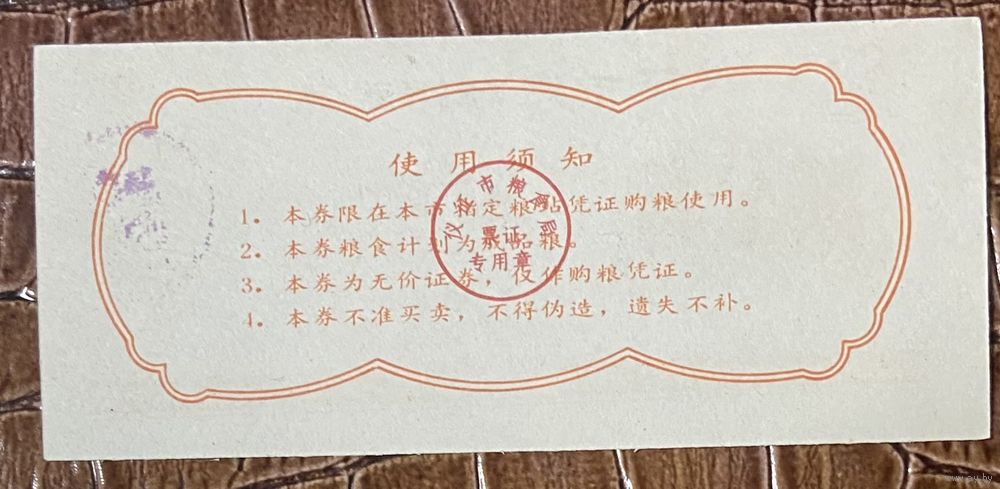 使用须知
1. 本券限在本市指定粮站凭证购粮使用。
2. 本券粮食计划为成品粮。
3. 本券为无价证券，仅作购粮凭证。
4. 本券不准买卖，不得伪造，遗失不补。
市粮食局
票证
专用章
www.ay.by